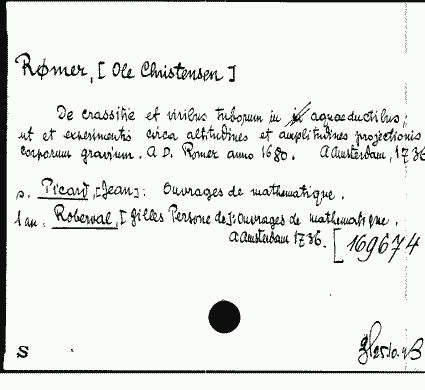 Rømer, [Ole Christensen]
De crassitie et viribus tuborum in aquaeductibus;
ut et experimentis circa altitudines et amplitudines projectionis
corporum gravium. A D. Romer anno 1680. A Amsterdam, 1736
s. Picard, [Jean]: Ouvrages de mathematique.
1 an: Roberval, [Gilles Persone de]: Ouvrages de mathematique.
A Amsterdam 1736. [169674
S